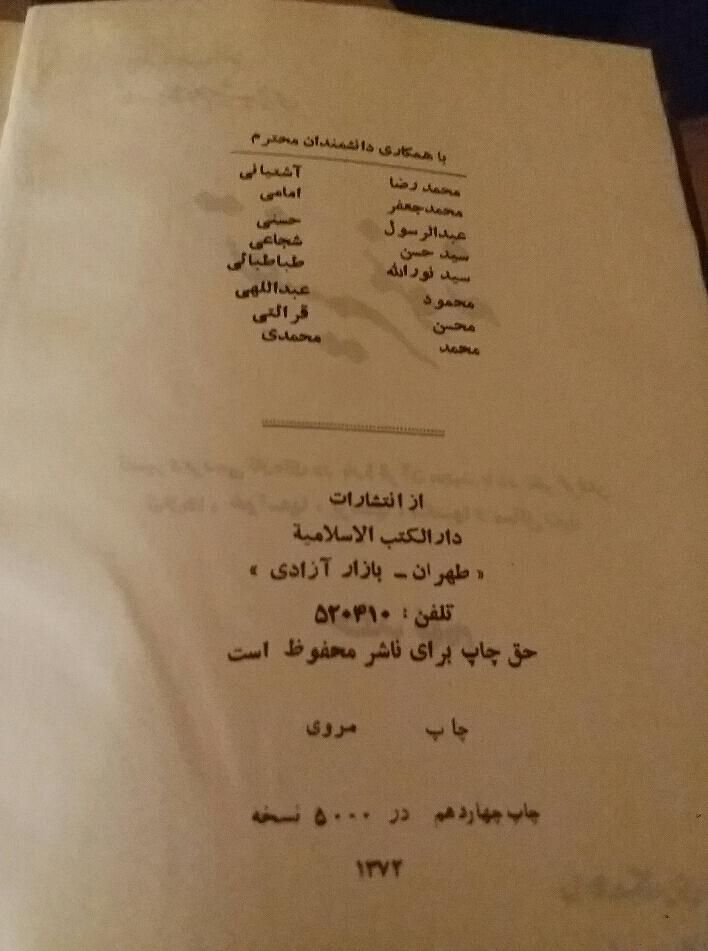 با همکاری دانشمندان محترم
محمد رضا آشتیانی
محمد جعفر امامی
عبدالرسول حسنی
سید حسن شجاعی
سید نورالله طباطبائی
محمود عبداللهی
محسن قرائتی
محمد محمدی
از انتشارات
دارالکتب الاسلامیة
« طهران ـ بازار آزادی »
تلفن : ۵۲۰۴۱۰
حق چاپ برای ناشر محفوظ است
چاپ مروی
چاپ چهاردهم در ۵۰۰۰ نسخه
۱۳۷۲